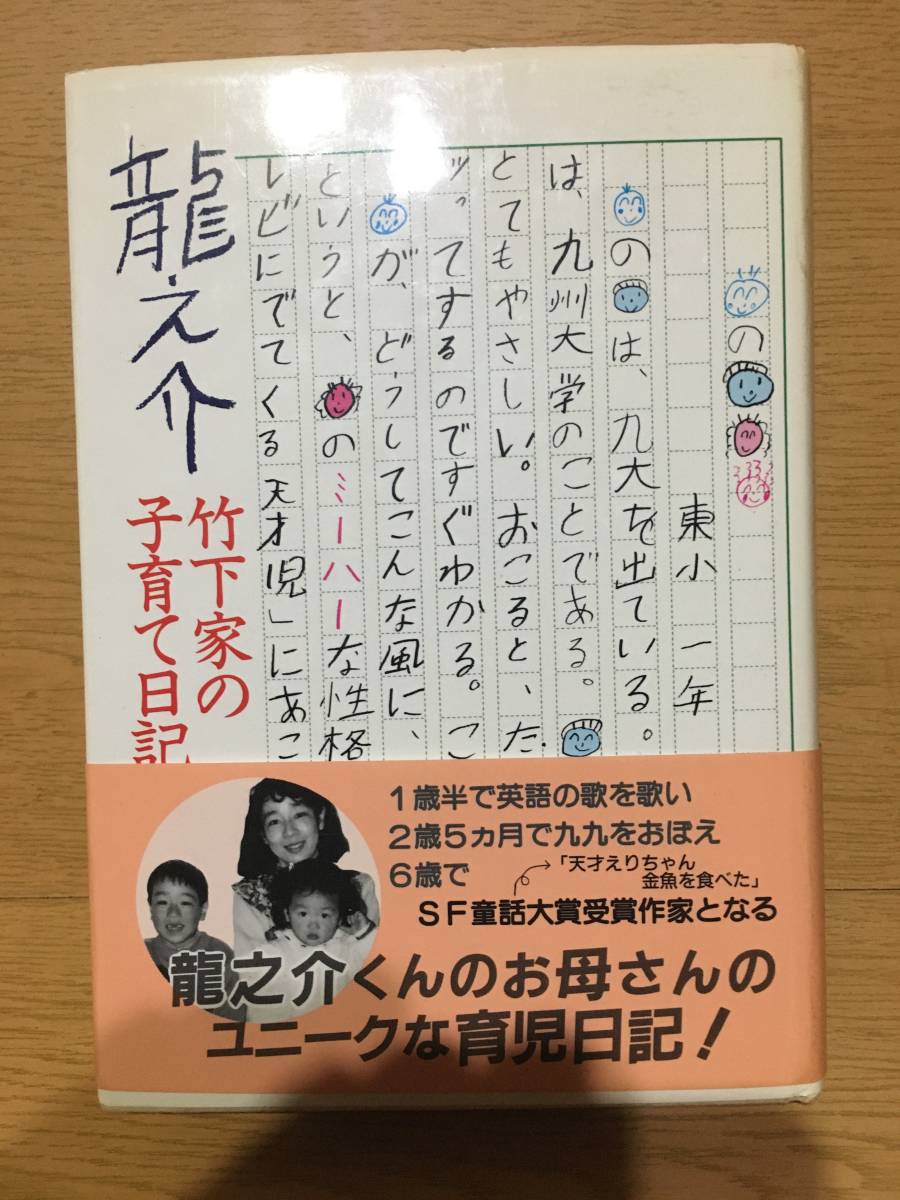 龍之介
竹下家の
子育て日記
の
東小一年
のは、九大を出ている。
は、九州大学のことである。
とてもやさしい。おこると、た
ッ。てするのですぐわかる。こ
が、どうしてこんな風に、
というと、のミーハーな性格
レビにでてくる天才児」にあこ
1歳半で英語の歌を歌い
2歳5ヵ月で九九をおぼえ
6歳で
「天才えりちゃん
金魚を食べた」
SF童話大賞受賞作家となる
龍之介くんのお母さんの
ユニークな育児日記!